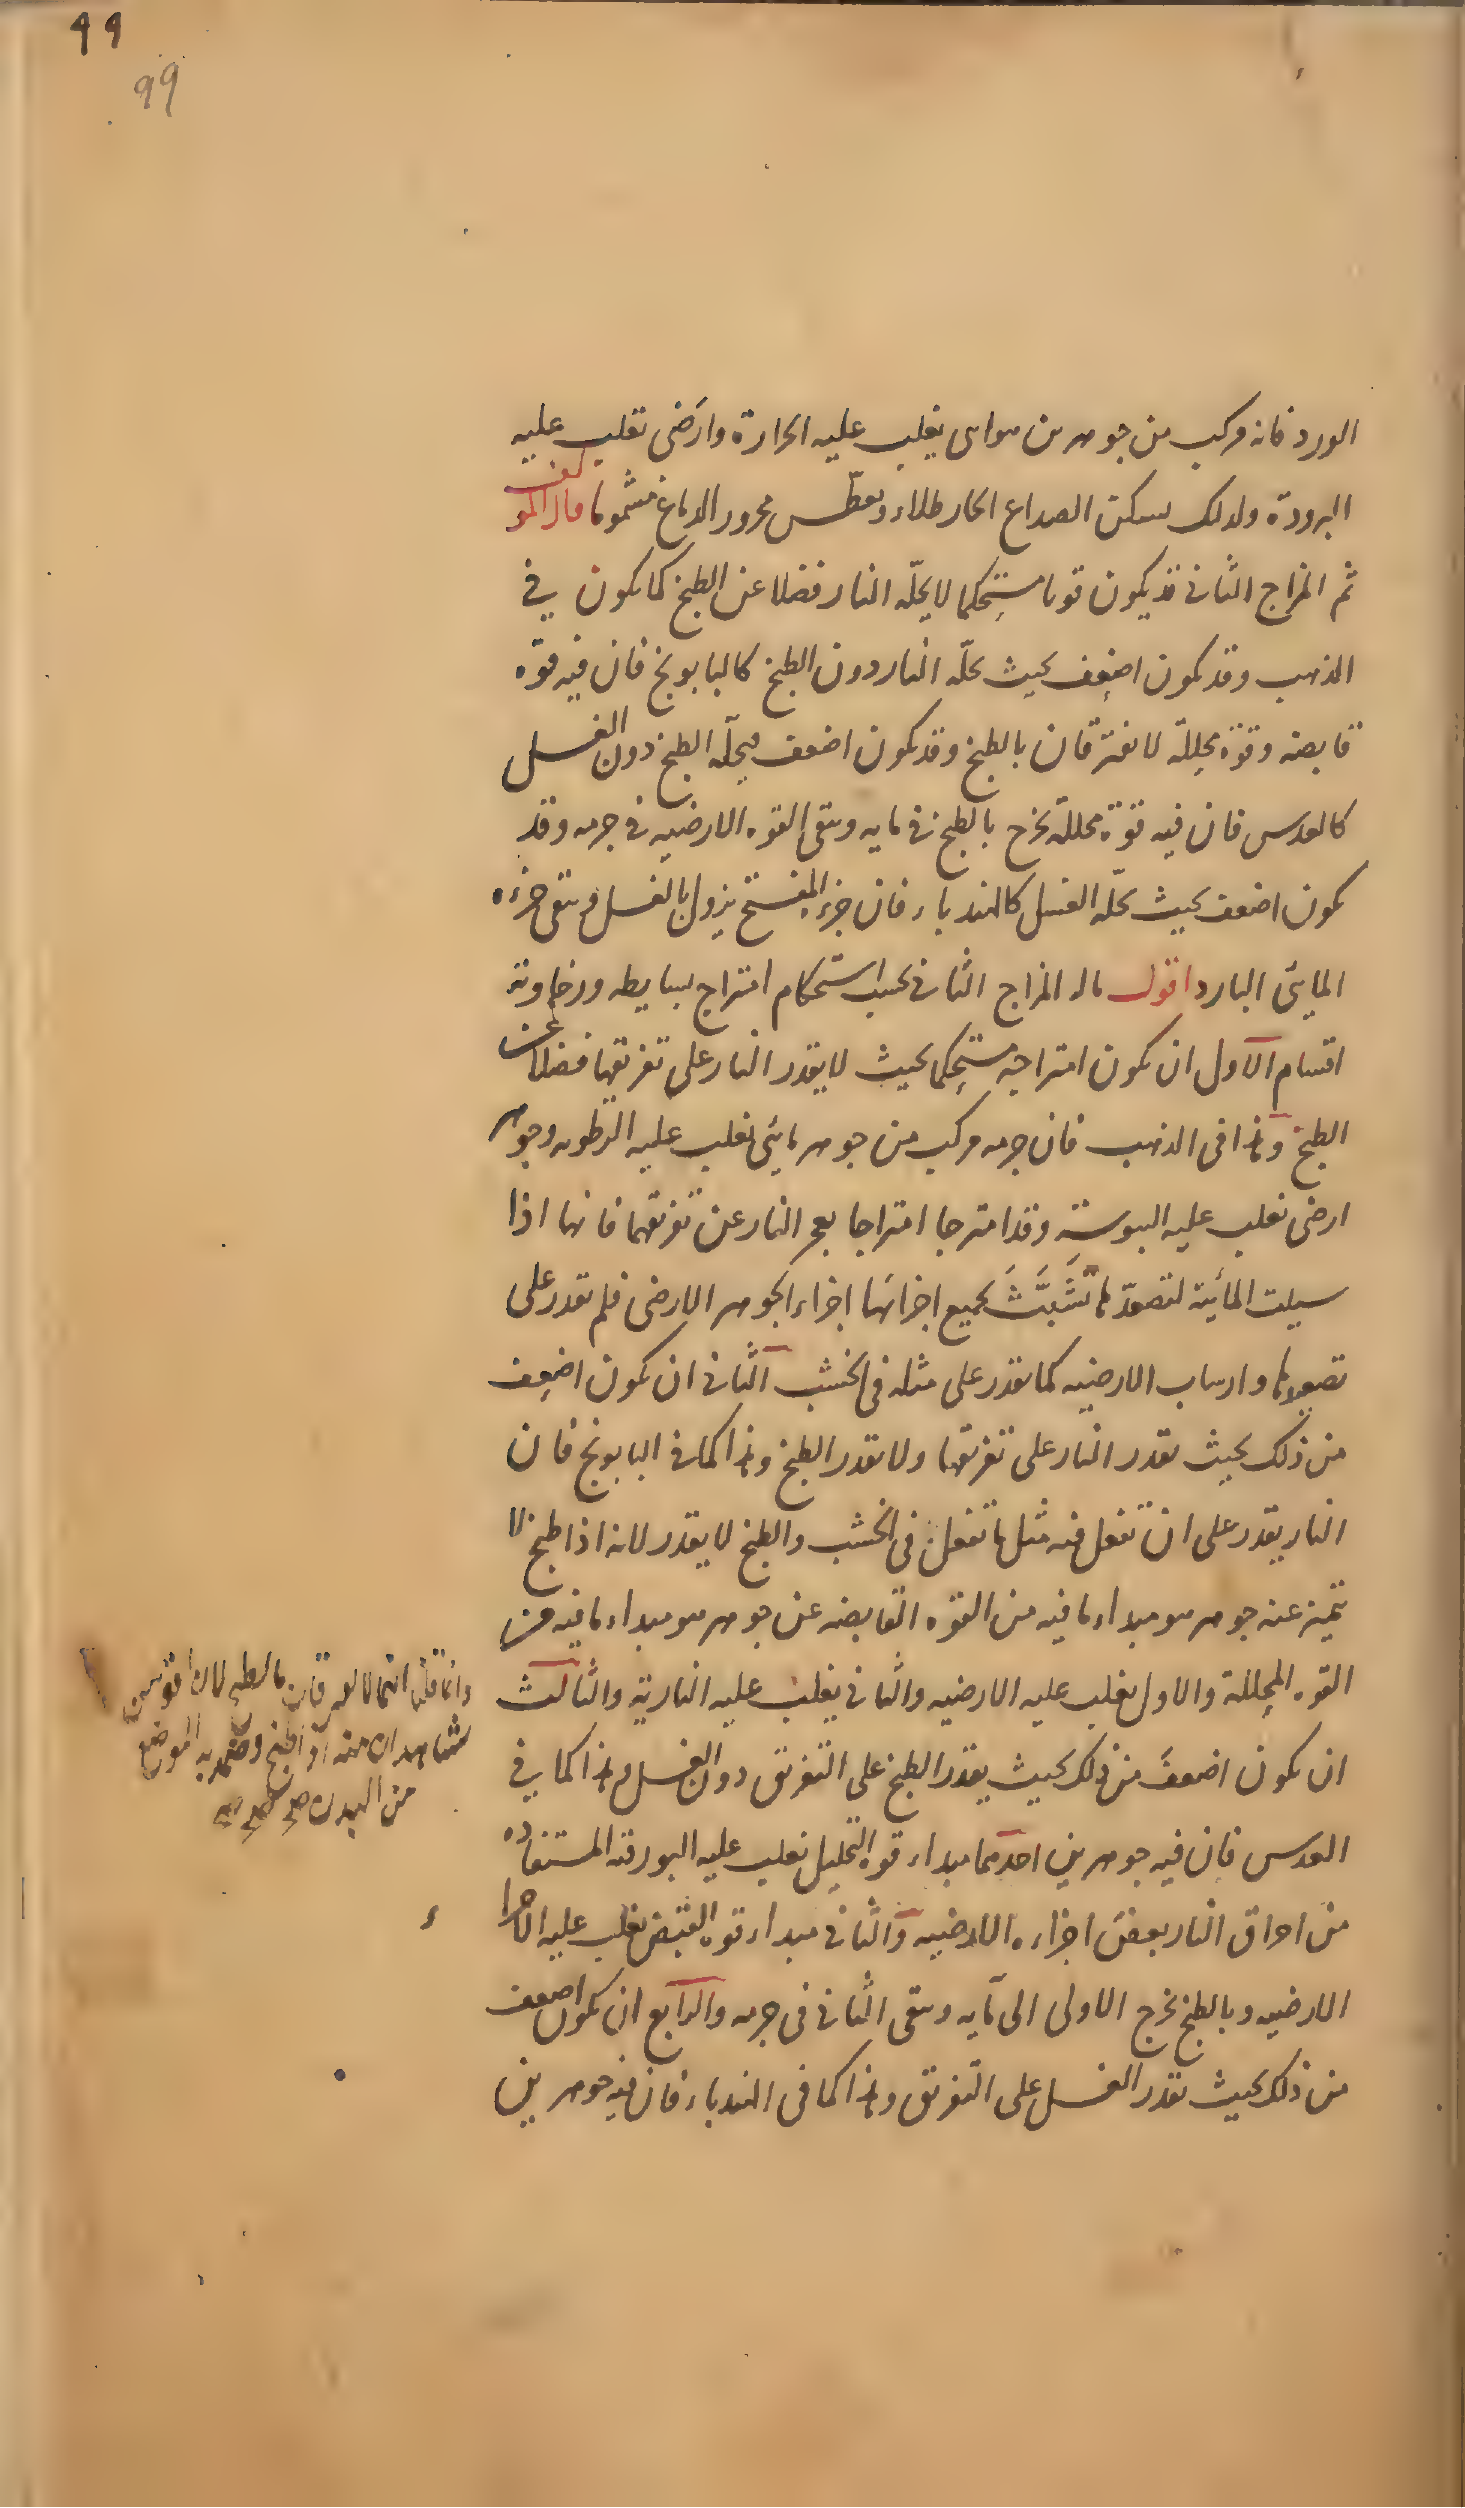 99
99
الورد فانه مركب من جوهرين هوائى يغلب عليه الحرارة وارضى تغلب عليه
البرودة ولذلك يسكن الصداع الحار طلاء ويعطّس محرور الدماغ مشموما قال المؤلف
ثم المزاج الثانى قد يكون قويا مستحكما لا يحلّه النار فضلا عن الطبخ كما يكون فى
الذهب وقد يكون اضعف بحيث يحلّه النار دون الطبخ كالبابونج فان فيه قوه
قابضه وقوّة محللّة لا تفترقان بالطبخ وقد يكون اضعف فيحلّه الطبخ دون الغسل
كالعدس فان فيه قوّة محللة تخرج بالطبخ فى مايه ويبقى القوه الارضيه فى جرمه وقد
يكون اضعف بحيث يحلّه الغسل كالهندباء فان جزءه المفتح يزول بالغسل ويبقى جزءه
المايئ البارد اقول ماله المزاج الثانى بحسب استحكام امتزاج بسايطه ورخاوته
اقسام الاول ان يكون امتزاجه مستحكما بحيث لا يقدر النار على تفريقها فضلا عن
الطبخ وهذا فى الذهب فان جرمه مركب من جوهر مايئ تغلب عليه الرطوبه وجوهر
ارضى تغلب عليه اليبوسة وقد امتزجا امتزاجا يعجز النار عن تفريقهما فانها اذا
سيلت المائية لتصعدها تَشَبَّثَ بجميع اجزائها اجزاء الجوهر الارضى فلم تقدر على
تصعيدها وارساب الارضيه كما تقدر على مثله فى الخشب الثانى ان يكون اضعف
من ذلك بحيث تقدر النار على تفريقها ولا تقدر الطبخ وهذا كما فى البابونج فان
النار يقدر على ان تفعل فيه مثل ما تفعل فى الخشب والطبخ لا يقدر لانه اذا طبخ لا
يتميز عنه جوهر هو مبداء ما فيه من القوه القابضه عن جوهر هو مبداء ما فيه من
القوه المحللة والاول يغلب عليه الارضيه والثانى يغلب عليه النارية والثالث
ان يكون اضعفَ من ذلك بحيث يقدر الطبخ على التفريق دون الغسل وهذا كما فى
العدس فان فيه جوهرين احدهما مبداء قوه التحليل تغلب عليه البورقيه المستفاده
من احراق النار بعض اجزاءه الارضيه والثانى مبداء قوه القبض يغلب عليه الاجزا
الارضيه وبالطبخ يخرج الاولى الى مآيه ويبقى الثانى فى جرمه والرابع ان يكون اضعف
من ذلك بحيث تقدر الغسل على التفريق وهذا كما فى الهندباء فان فيه جوهرين
وانما قلنا انهما لا يفترقان بالطبخ لان القوتين
تشاهدان منه اذا طبخ وضمد به الموضع
من البدن صح صح صح